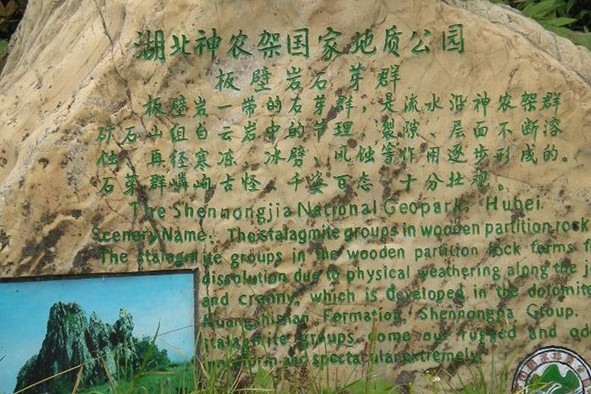 湖北神农架国家地质公园
板壁岩石芽群
板壁岩一带的石芽群,是流水沿神农架群
矿石山组白云岩中的节理、裂隙、层面不断溶
蚀,再经寒冻、冰劈、风蚀等作用逐步形成的。
石芽群嶙峋古怪,千姿百态,十分壮观。
The Shennongjia National Geopark, Hubei
Scenery Name: The stalagmite groups in wooden partition rock
The stalagmite groups in the wooden partition rock forms
dissolution due to physical weathering along the
and cranny, which is developed in the dolomite
Formation, Shennongjia Group.
groups, some are rugged and
and spectacular extremely.